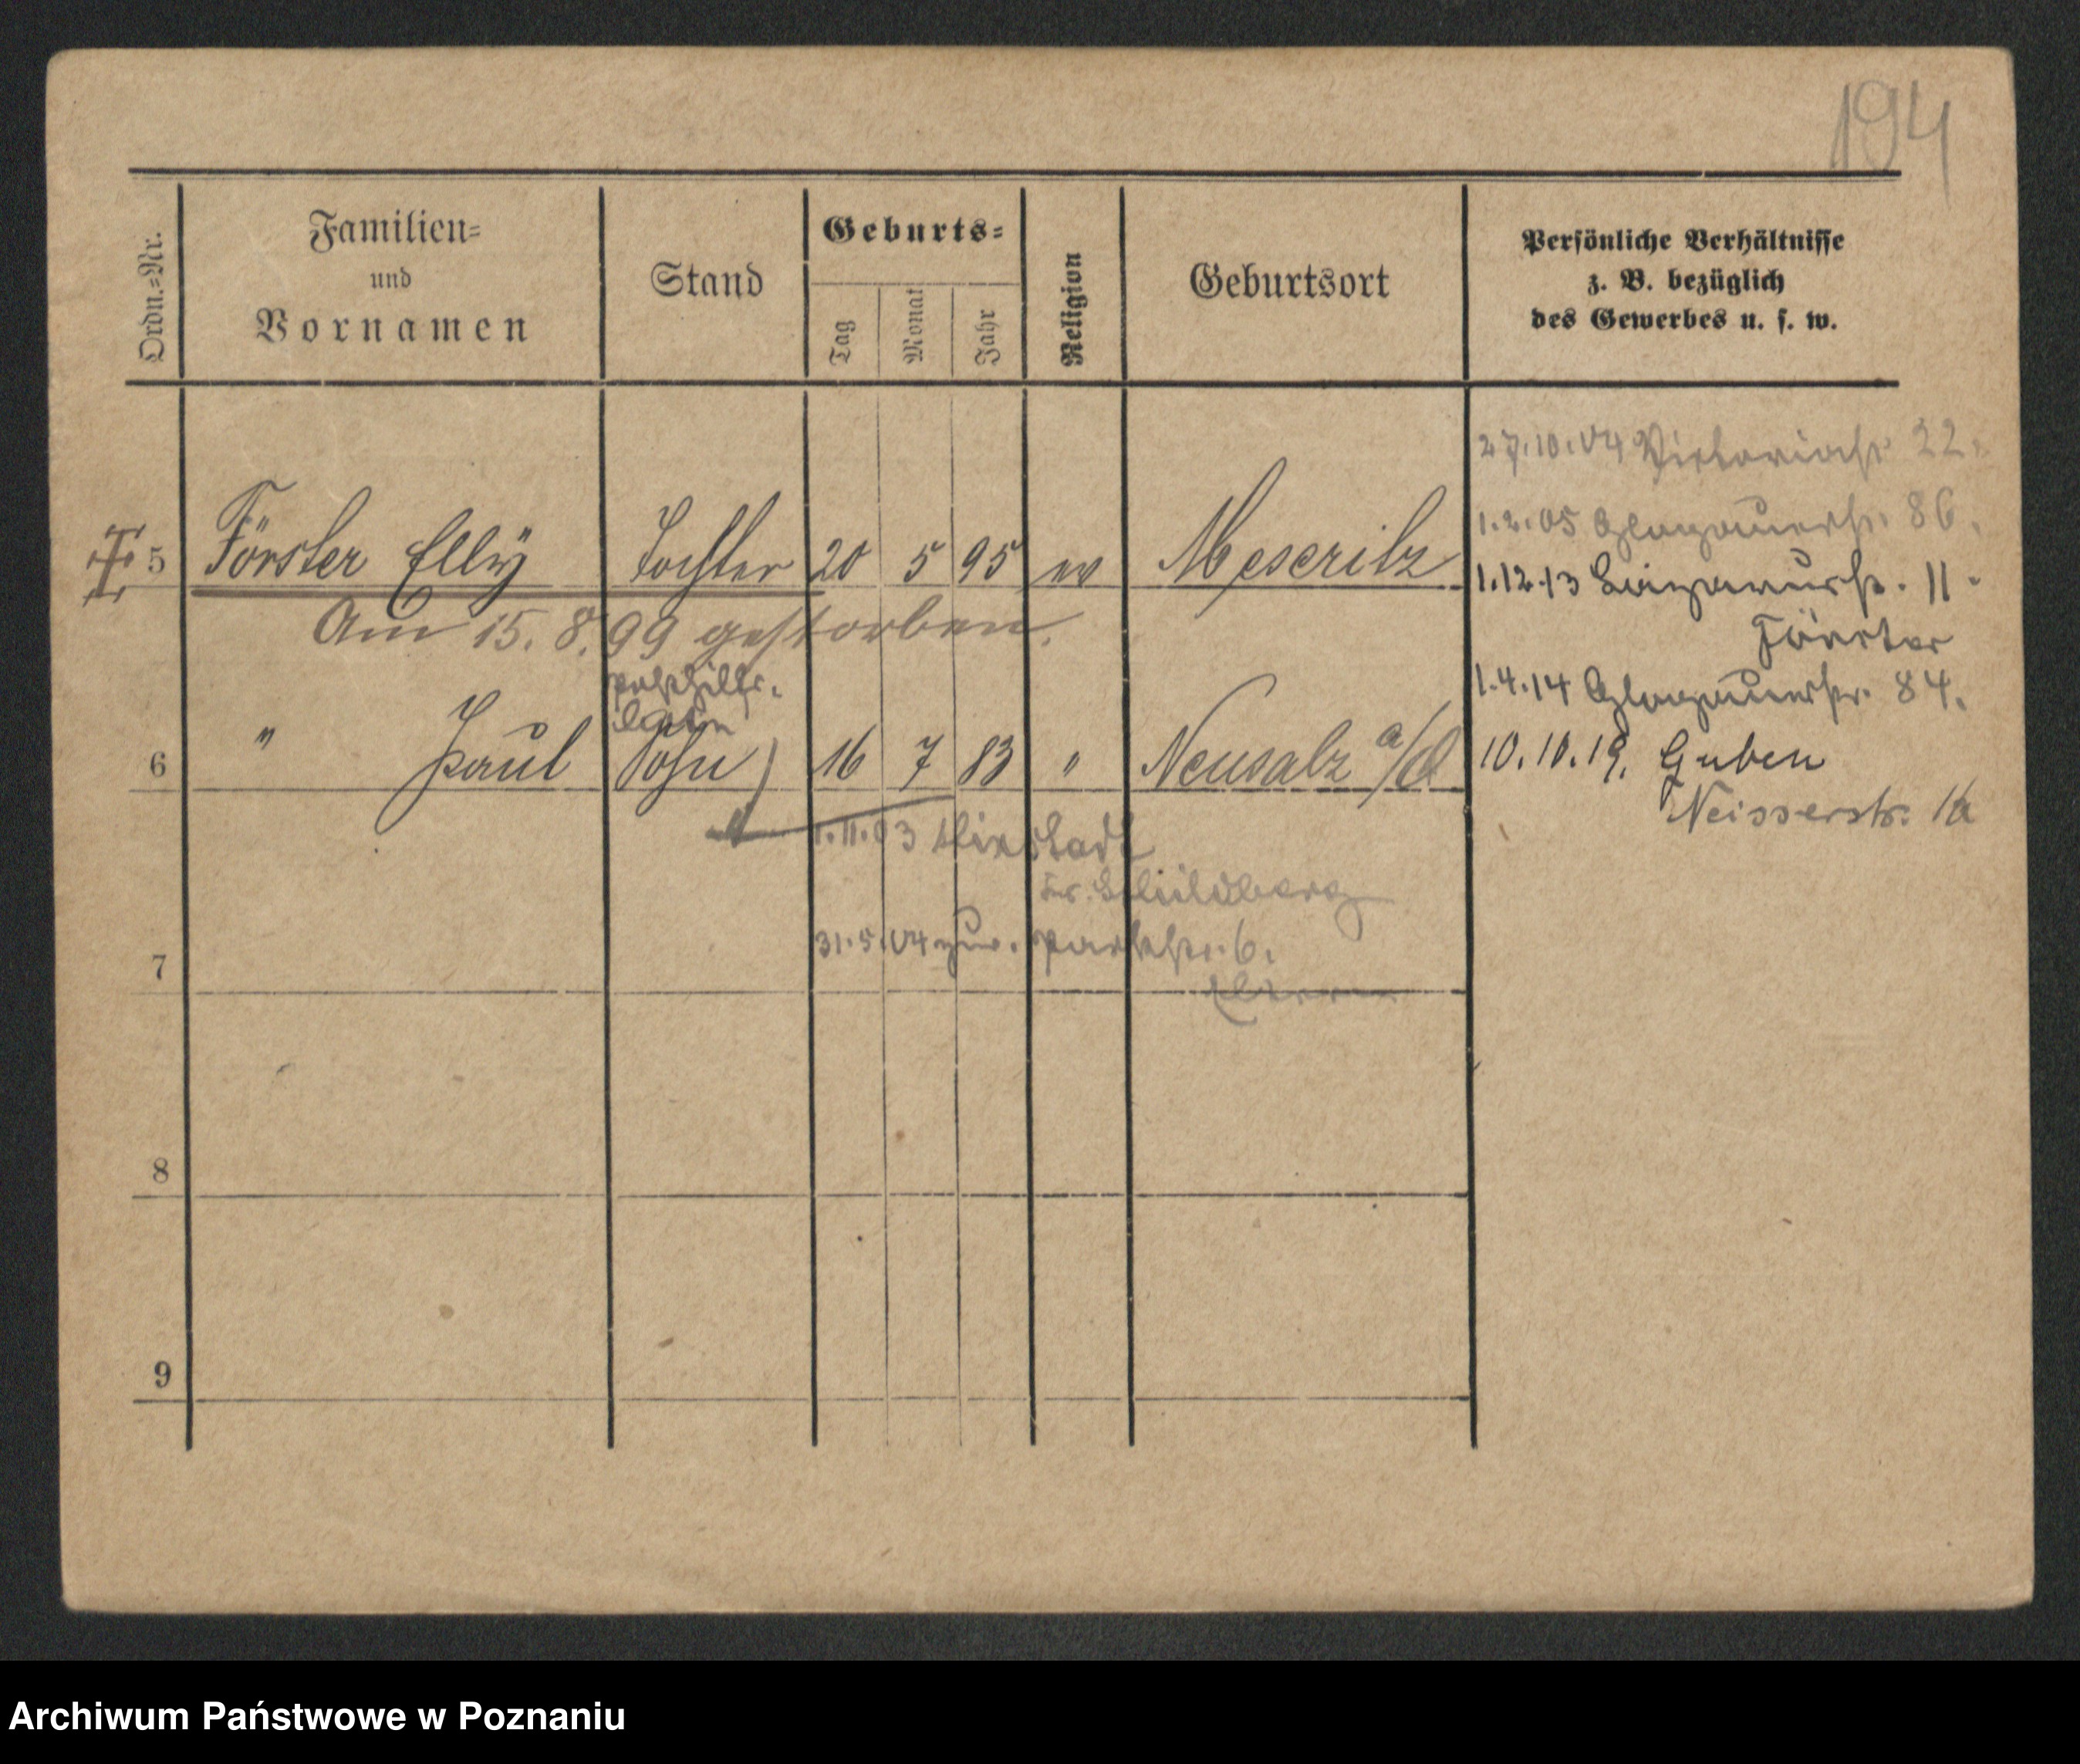 194
Ordn.=Nr.
Familien=
und
Vornamen
Stand
Geburts=
Tag
Monat
Jahr
Religion
Geburtsort
Persönliche Verhältnisse
z. B. bezüglich
des Gewerbes u. s. w.
27.10.04 Viktoriastr. 22.
1.2.05 Glogauerstr. 86.
5 Förster Elly Tochter 20 5 95 ev Meseritz
1.12.13 11.
Förster
Am 15.8.99 gestorben.
1.4.14 Glogauerstr. 84.
Posthilfs-
6 " Paul Sohn) 16 7 83 " Neusalz a/O
10.10.19. Guben
Neisserstr. 16
1.11.03 Mixstadt
Kr. Schildberg
31.5.04 zur. Parkstr. 6.
Eltern
7
8
9
Archiwum Państwowe w Poznaniu